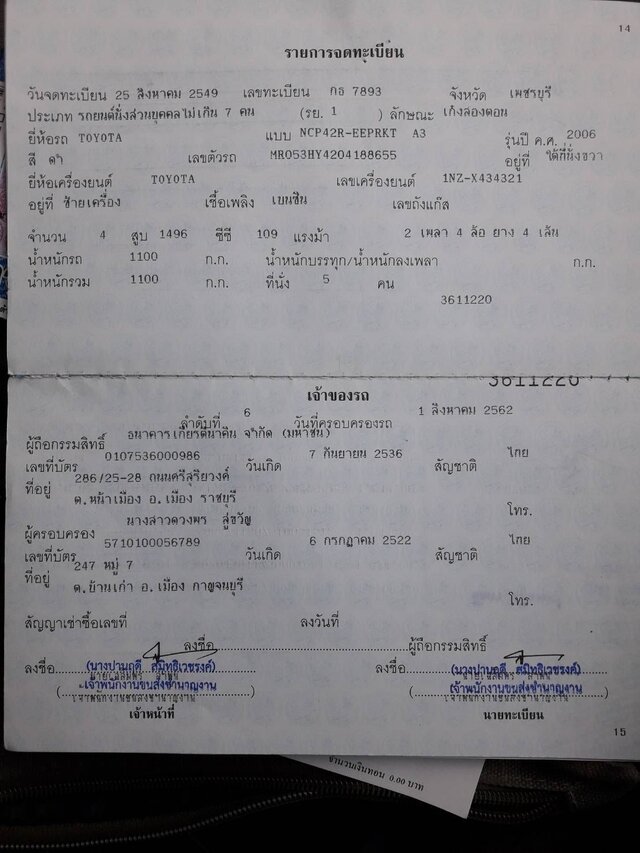 14
รายการจดทะเบียน
วันจดทะเบียน 25 สิงหาคม 2549 เลขทะเบียน กธ 7893 จังหวัด เพชรบุรี
ประเภท รถยนต์นั่งส่วนบุคคลไม่เกิน 7 คน (รย. 1 ) ลักษณะ เก๋งสองตอน
ยี่ห้อรถ TOYOTA แบบ NCP42R-EEPRKT A3 รุ่นปี ค.ศ. 2006
สี ดำ เลขตัวรถ MR053HY4204188655 อยู่ที่ ใต้ที่นั่งขวา
ยี่ห้อเครื่องยนต์ TOYOTA เลขเครื่องยนต์ 1NZ-X434321
อยู่ที่ ซ้ายเครื่อง เชื้อเพลิง เบนซิน เลขถังแก๊ส
จำนวน 4 สูบ 1496 ซีซี 109 แรงม้า 2 เพลา 4 ล้อ ยาง 4 เส้น
น้ำหนักรถ 1100 ก.ก. น้ำหนักบรรทุก/น้ำหนักลงเพลา ก.ก.
น้ำหนักรวม 1100 ก.ก. ที่นั่ง 5 คน
3611220
3611220
เจ้าของรถ
ลำดับที่ 6 วันที่ครอบครองรถ 1 สิงหาคม 2562
ผู้ถือกรรมสิทธิ์ ธนาคารเกียรตินาคิน จำกัด (มหาชน)
เลขที่บัตร 0107536000986 วันเกิด 7 กันยายน 2536 สัญชาติ ไทย
ที่อยู่ 286/25-28 ถนนศรีสุริยวงค์
ต.หน้าเมือง อ.เมือง ราชบุรี โทร.
ผู้ครอบครอง นางสาวดวงพร สู่ขวัญ
เลขที่บัตร 5710100056789 วันเกิด 6 กรกฎาคม 2522 สัญชาติ ไทย
ที่อยู่ 247 หมู่ 7
ต.บ้านเก่า อ.เมือง กาญจนบุรี
โทร.
สัญญาเช่าซื้อเลขที่ ลงวันที่
ลงชื่อ ผู้ถือกรรมสิทธิ์
ลงชื่อ (นางปานฤดี สุมิทธิเวชรงค์) ลงชื่อ (นางปานฤดี สุมิทธิเวชรงค์)
เจ้าพนักงานขนส่งชำนาญงาน เจ้าพนักงานขนส่งชำนาญงาน
เจ้าพนักงานขนส่งชำนาญงาน เจ้าพนักงานขนส่งชำนาญงาน
เจ้าหน้าที่ นายทะเบียน
15
จำนวนเงินทอน 0.00 บาท